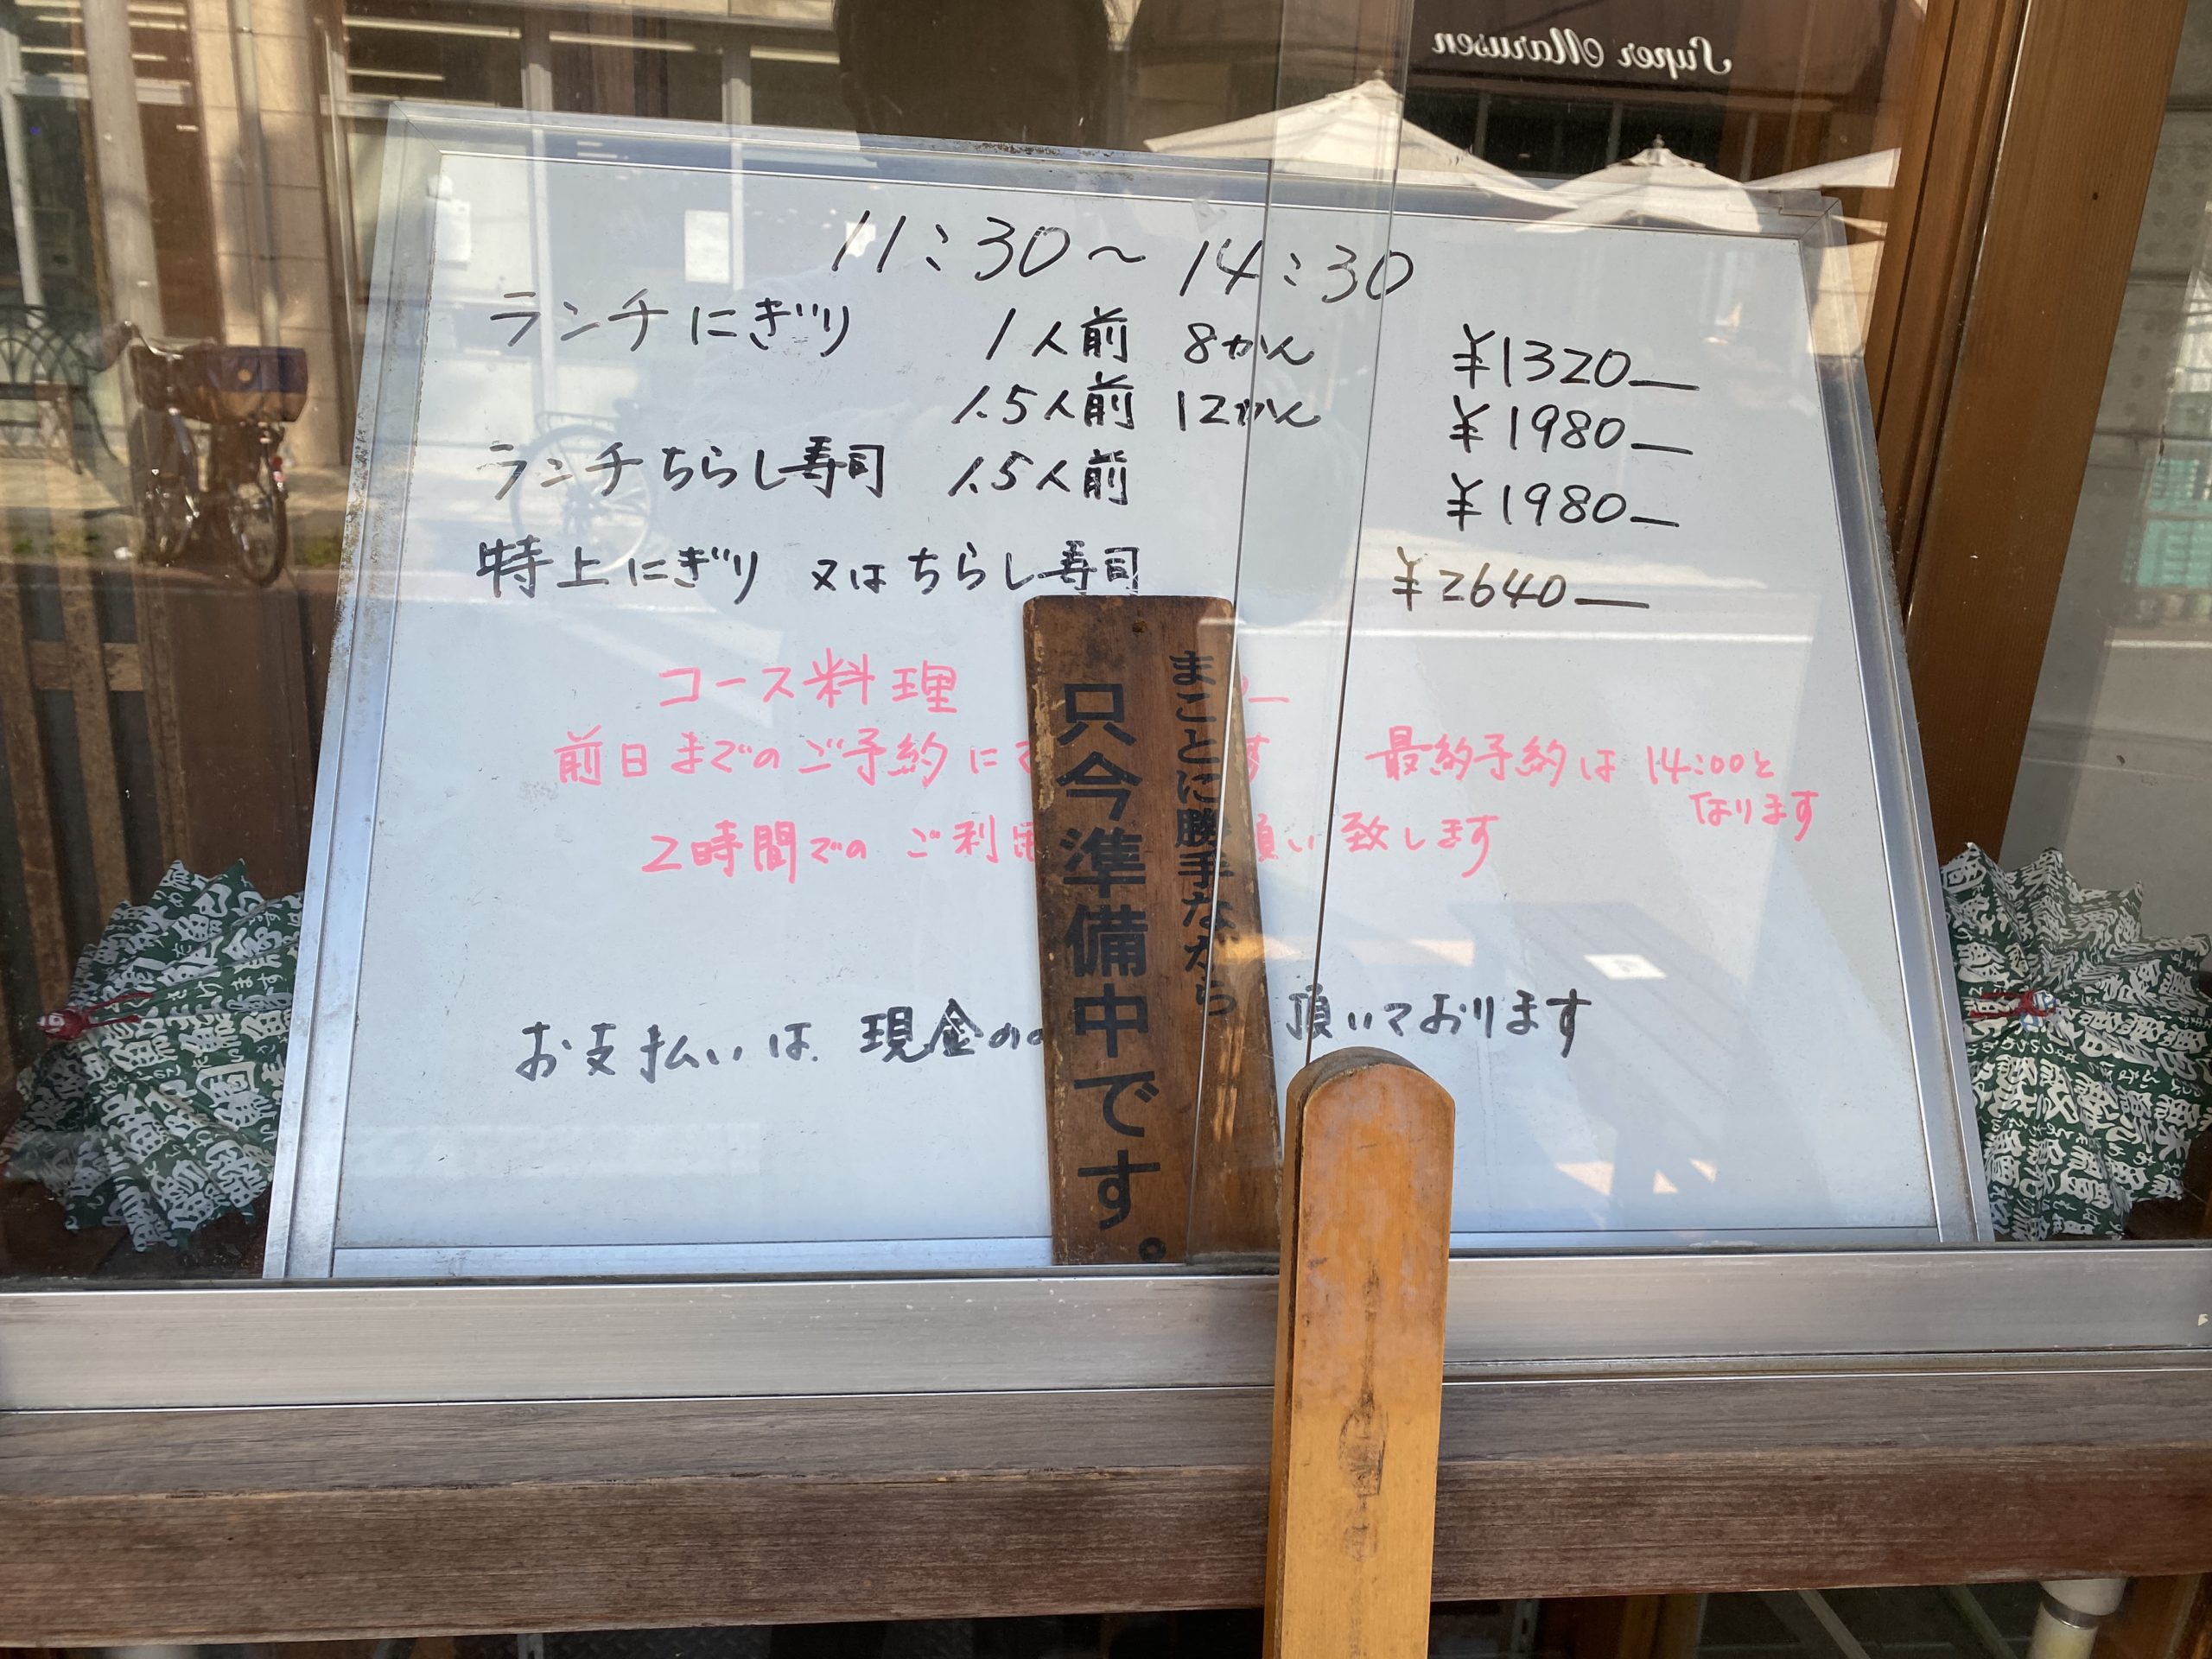 Super Marusen
11:30～14:30
ランチにぎり 1人前 8かん ¥1320
1.5人前 12かん ¥1980
ランチちらし寿司 1.5人前 ¥1980
特上にぎり 又はちらし寿司 ¥2640
コース料理
前日までのご予約に
最終予約は14:00と
なります
2時間でのご利用 願い致します
お支払いは 現金の 頂いております
まことに勝手ながら
只今準備中です。